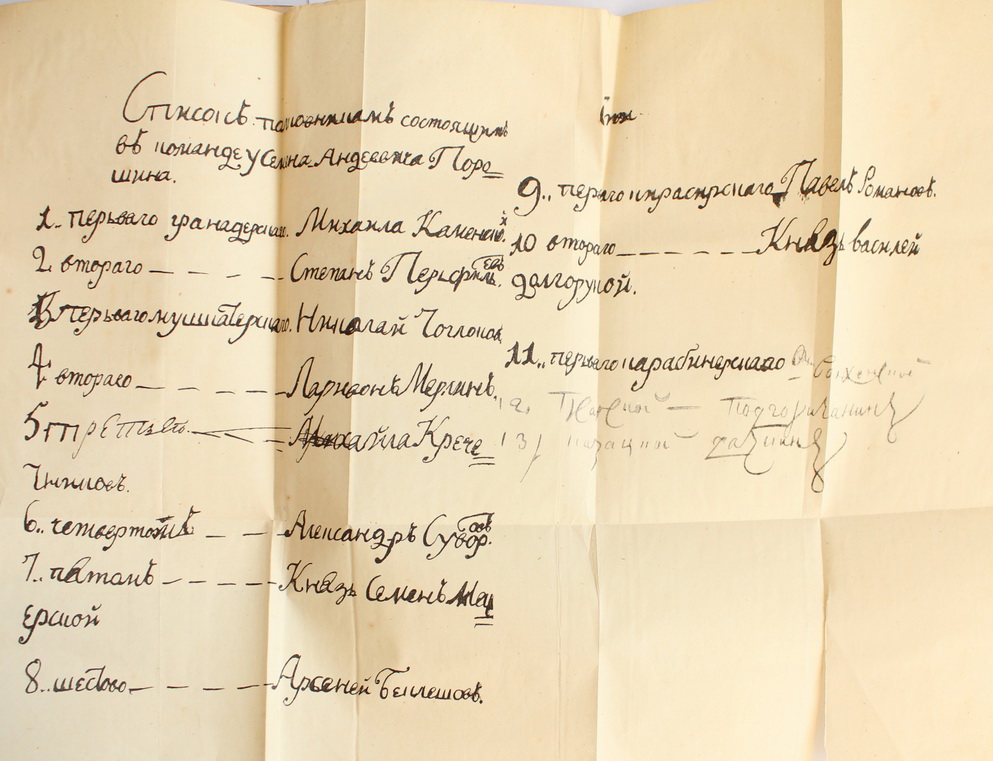 Списокъ полковникамъ состоящимъ
въ команде у Семена Андеевича Поро=
шина.
1.. перьваго гранадерскаго. Михаила Каменской.
2. втораго — — — Степанъ Перфильевъ.
3 перьваго мушкатерскаго. Николай Чоглоков
4 втораго — — — Ларионъ Мерлинъ.
5 третьяго — Михайла Крече=
тниковъ.
6.. четвертой — — Александръ Суворовъ.
7.. пятой — — — — Князь Семенъ Мещ=
ерской
8.. шестово — — — Арсеней Беклешовъ.
9.. перваго кирасирскаго Павелъ Романовъ.
10 втораго — — — — Князь василей
долгорукой.
11.. перьваго карабинернаго
12 — Подгоричанинъ
13)